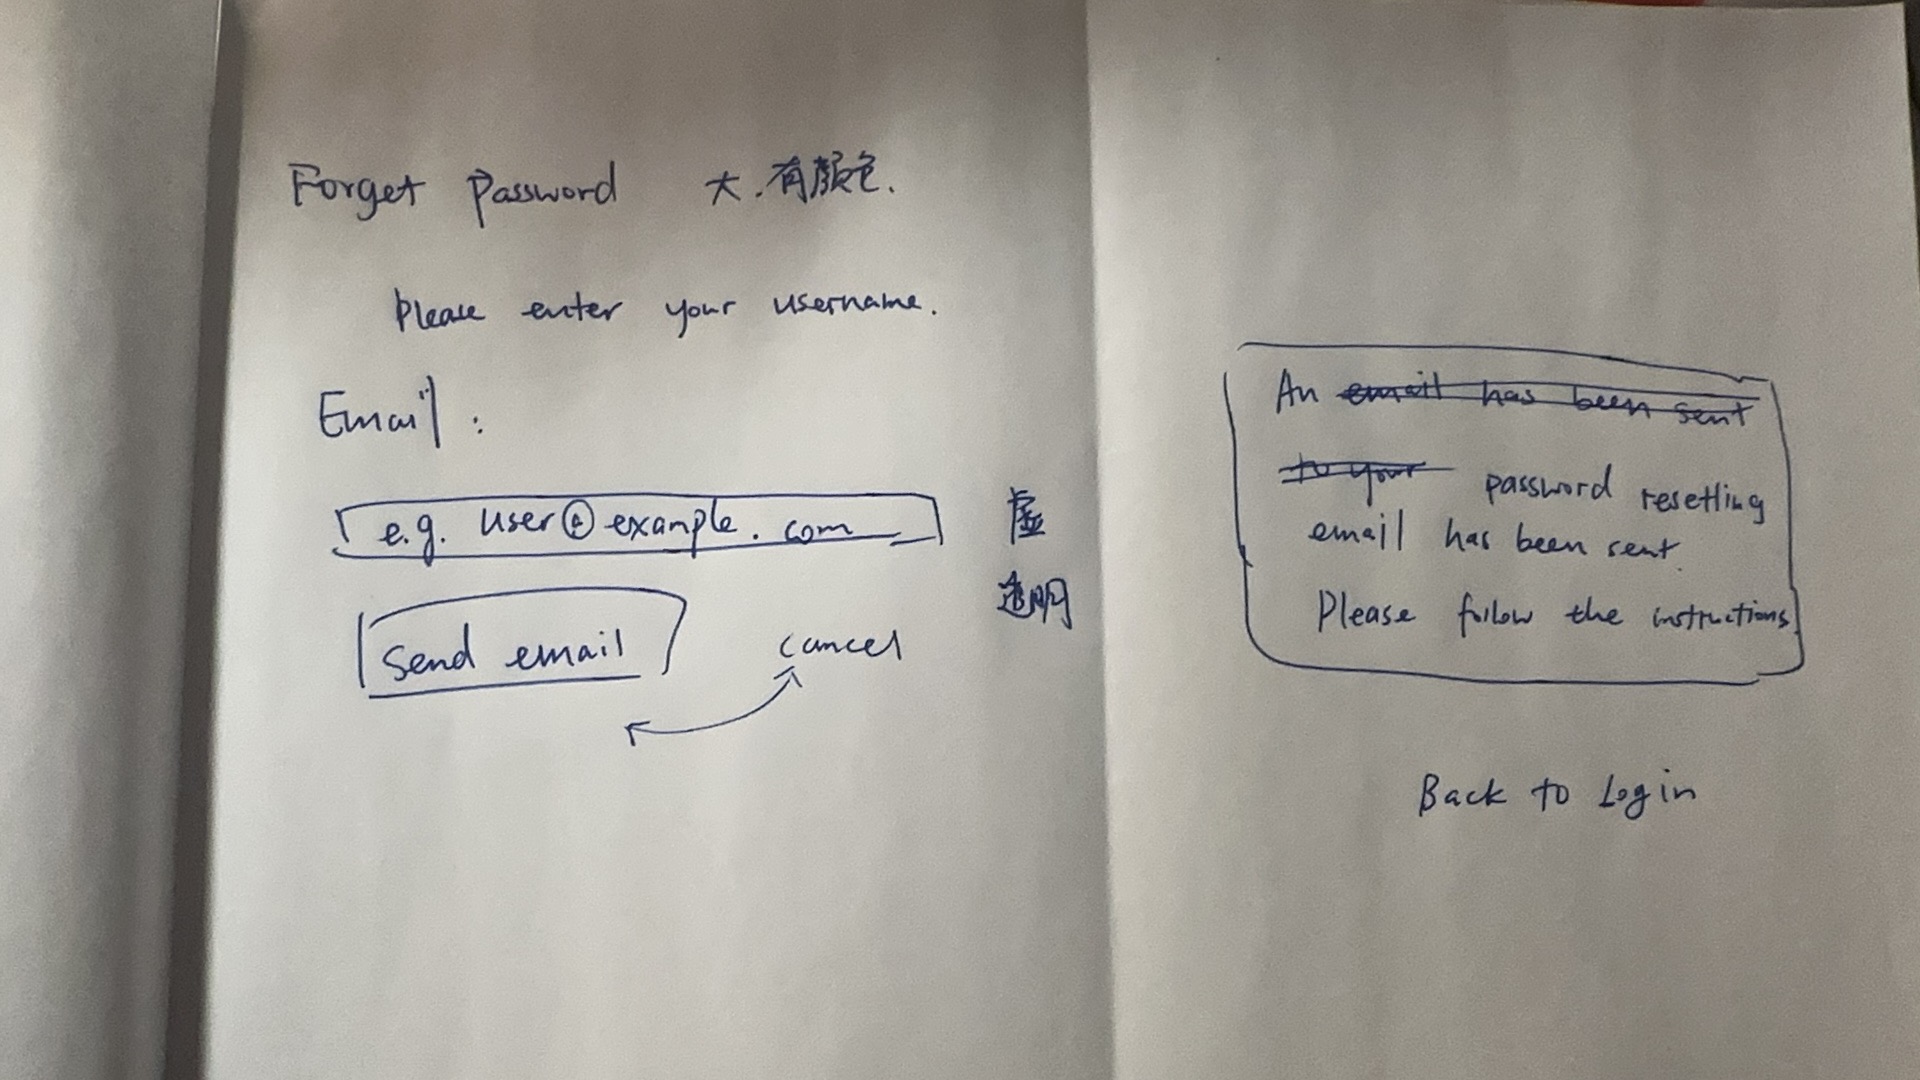 Forget Password 大.有颜色.
Please enter your username.
Email:
e.g. user@example.com
虚
透明
Send email
cancel
An email has been sent
to your password resetting
email has been sent.
Please follow the instructions
Back to Login